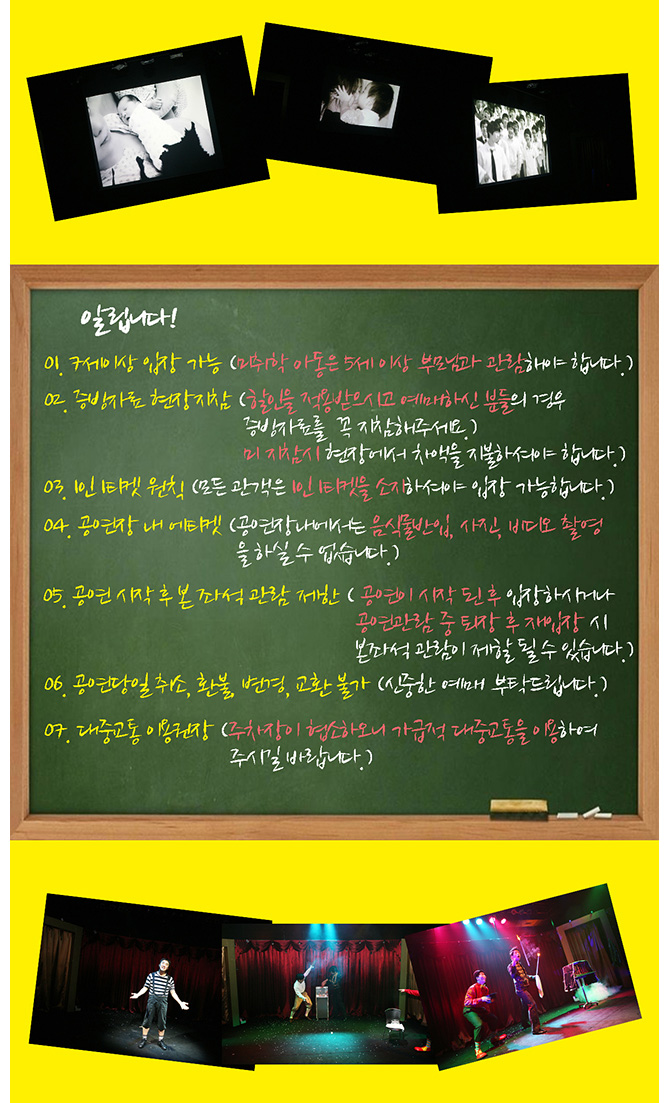 알립니다!
01. 7세이상 입장 가능 (미취학 아동은 5세 이상 부모님과 관람해야 합니다.)
02. 증빙자료 현장지참 (할인을 적용받으시고 예매하신 분들의 경우
증빙자료를 꼭 지참해주세요.)
미 지참시 현장에서 차액을 지불하셔야 합니다.)
03. 1인 1티켓 원칙 (모든 관객은 1인 1티켓을 소지하셔야 입장 가능합니다.)
04. 공연장 내 에티켓 (공연장내에서는 음식물반입, 사진, 비디오 촬영
을 하실 수 없습니다.)
05. 공연 시작 후 본 좌석 관람 제한 ( 공연이 시작 된 후 입장하시거나
공연관람 중 퇴장 후 재입장 시
본좌석 관람이 제한 될 수 있습니다.)
06. 공연당일 취소, 환불, 변경, 교환 불가 (신중한 예매 부탁드립니다.)
07. 대중교통 이용권장 (주차장이 협소하오니 가급적 대중교통을 이용하여
주시길 바랍니다.)